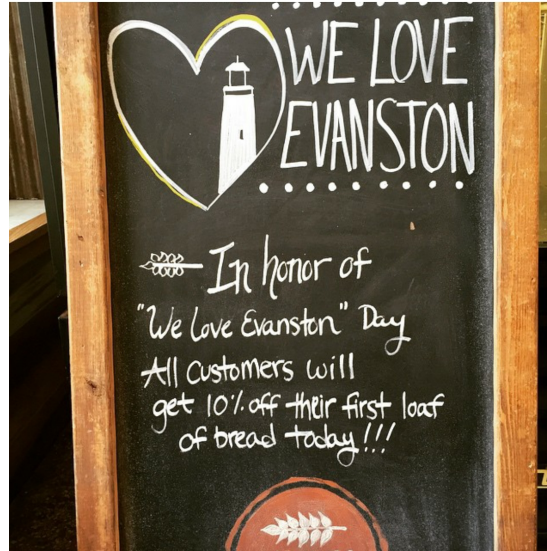 WE LOVE
EVANSTON
In honor of
"We Love Evanston" Day
All customers will
get 10% off their first loaf
of bread today!!!